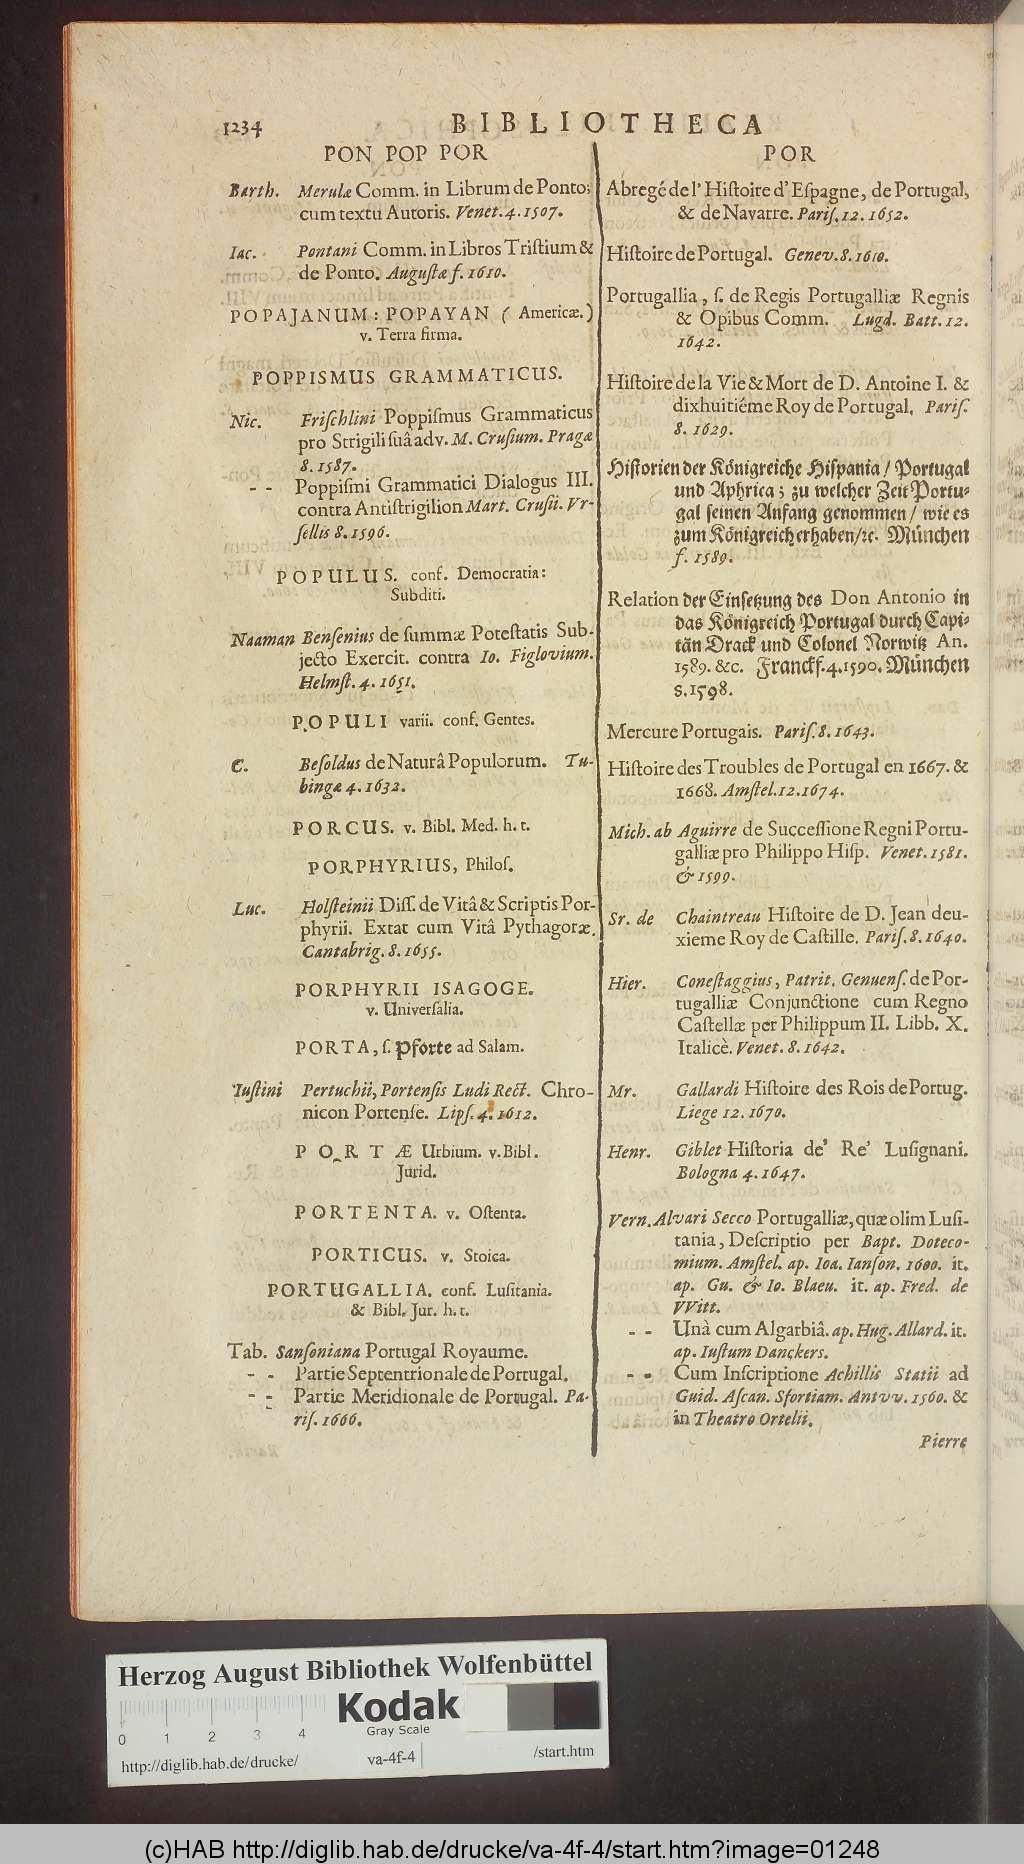 1234 BIBLIOTHECA
PON POP POR
Barth. Merulæ Comm. in Librum de Ponto;
cum textu Autoris. Venet. 4. 1507.
Iac. Pontani Comm. in Libros Tristium &
de Ponto. Augustæ f. 1610.
POPAJANUM: POPAYAN ( Americæ.)
v. Terra firma.
POPPISMUS GRAMMATICUS.
Nic. Friſchlini Poppiſmus Grammaticus
pro Strigili ſuâ adv. M. Cruſium. Pragæ
8. 1587.
- - Poppiſmi Grammatici Dialogus III.
contra Antiſtrigilion Mart. Cruſii. Vr-
ſellis 8. 1596.
POPULUS. conf. Democratia:
Subditi.
Naaman Benſenius de ſummæ Poteſtatis Sub-
jecto Exercit. contra Io. Figlovium.
Helmſt. 4. 1651.
POPULI varii. conf. Gentes.
C. Beſoldus de Naturâ Populorum. Tu-
bingæ 4. 1632.
PORCUS. v. Bibl. Med. h. t.
PORPHYRIUS, Philoſ.
Luc. Holſteinii Diſſ. de Vitâ & Scriptis Por-
phyrii. Extat cum Vitâ Pythagoræ.
Cantabrig. 8. 1655.
PORPHYRII ISAGOGE.
v. Univerſalia.
PORTA, ſ. Pforte ad Salam.
Iuſtini Pertuchii, Portenſis Ludi Rect. Chro-
nicon Portenſe. Lipſ. 4. 1612.
PORTÆ Urbium. v. Bibl.
Jurid.
PORTENTA. v. Oſtenta.
PORTICUS. v. Stoica.
PORTUGALLIA. conf. Luſitania.
& Bibl. Jur. h. t.
Tab. Sanſoniana Portugal Royaume.
- - Partie Septentrionale de Portugal.
- - Partie Meridionale de Portugal. Pa-
riſ. 1666.
POR
Abregé de l' Hiſtoire d' Eſpagne, de Portugal,
& de Navarre. Pariſ. 12. 1652.
Hiſtoire de Portugal. Genev. 8. 1610.
Portugallia, ſ. de Regis Portugalliæ Regnis
& Opibus Comm. Lugd. Batt. 12.
1642.
Hiſtoire de la Vie & Mort de D. Antoine I. &
dixhuitiéme Roy de Portugal. Pariſ.
8. 1629.
Hiſtorien der Königreiche Hiſpania / Portugal
und Aphrica; zu welcher Zeit Portu-
gal ſeinen Anfang genommen / wie es
zum Königreich erhaben / ꝛc. München
f. 1589.
Relation der Einſetzung des Don Antonio in
das Königreich Portugal durch Capi-
tän Drack und Colonel Norwitz An.
1589. &c. Franckf. 4. 1590. München
8. 1598.
Mercure Portugais. Pariſ. 8. 1643.
Hiſtoire des Troubles de Portugal en 1667. &
1668. Amſtel. 12. 1674.
Mich. ab Aguirre de Succeſſione Regni Portu-
galliæ pro Philippo Hiſp. Venet. 1581.
& 1599.
Sr. de Chaintreau Hiſtoire de D. Jean deu-
xieme Roy de Caſtille. Pariſ. 8. 1640.
Hier. Coneſtaggius, Patrit. Genuenſ. de Por-
tugalliæ Conjunctione cum Regno
Caſtellæ per Philippum II. Libb. X.
Italicè. Venet. 8. 1642.
Mr. Gallardi Hiſtoire des Rois de Portug.
Liege 12. 1670.
Henr. Giblet Hiſtoria de' Re' Luſignani.
Bologna 4. 1647.
Vern. Alvari Secco Portugalliæ, quæ olim Luſi-
tania, Deſcriptio per Bapt. Doteco-
mium. Amſtel. ap. Ioa. Ianſon. 1600. it.
ap. Gu. & Io. Blaeu. it. ap. Fred. de
VVitt.
- - Unà cum Algarbiâ. ap. Hug. Allard. it.
ap. Iuſtum Danckers.
- - Cum Inſcriptione Achillis Statii ad
Guid. Aſcan. Sfortiam. Antvv. 1560. &
in Theatro Ortelii.
Pierre
Herzog August Bibliothek Wolfenbüttel
Kodak
Gray Scale
0 1 2 3 4
http://diglib.hab.de/drucke/ va-4f-4 /start.htm
(c)HAB http://diglib.hab.de/drucke/va-4f-4/start.htm?image=01248